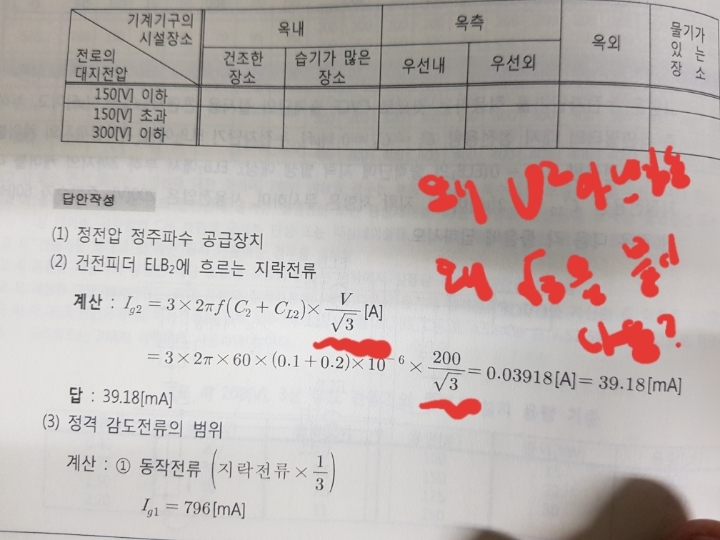 기계기구의
시설장소
옥내
옥측
옥외
물기가
있 는
장 소
전로의
대지전압
건조한
장소
습기가 많은
장소
우선내
우선외
150[V] 이하
150[V] 초과
300[V] 이하
왜 V²아닌
답안작성
(1) 정전압 정주파수 공급장치
왜 √3을
나요?
(2) 건전피더 ELB₂에 흐르는 지락전류
계산 : I_{g2} = 3×2πf(C₂+C_{L2})× V/√3 [A]
= 3×2π×60×(0.1+0.2)×10⁻⁶× 200/√3 = 0.03918[A] = 39.18[mA]
답 : 39.18[mA]
(3) 정격 감도전류의 범위
계산 : ① 동작전류 (지락전류×1/3)
I_{g1} = 796[mA]